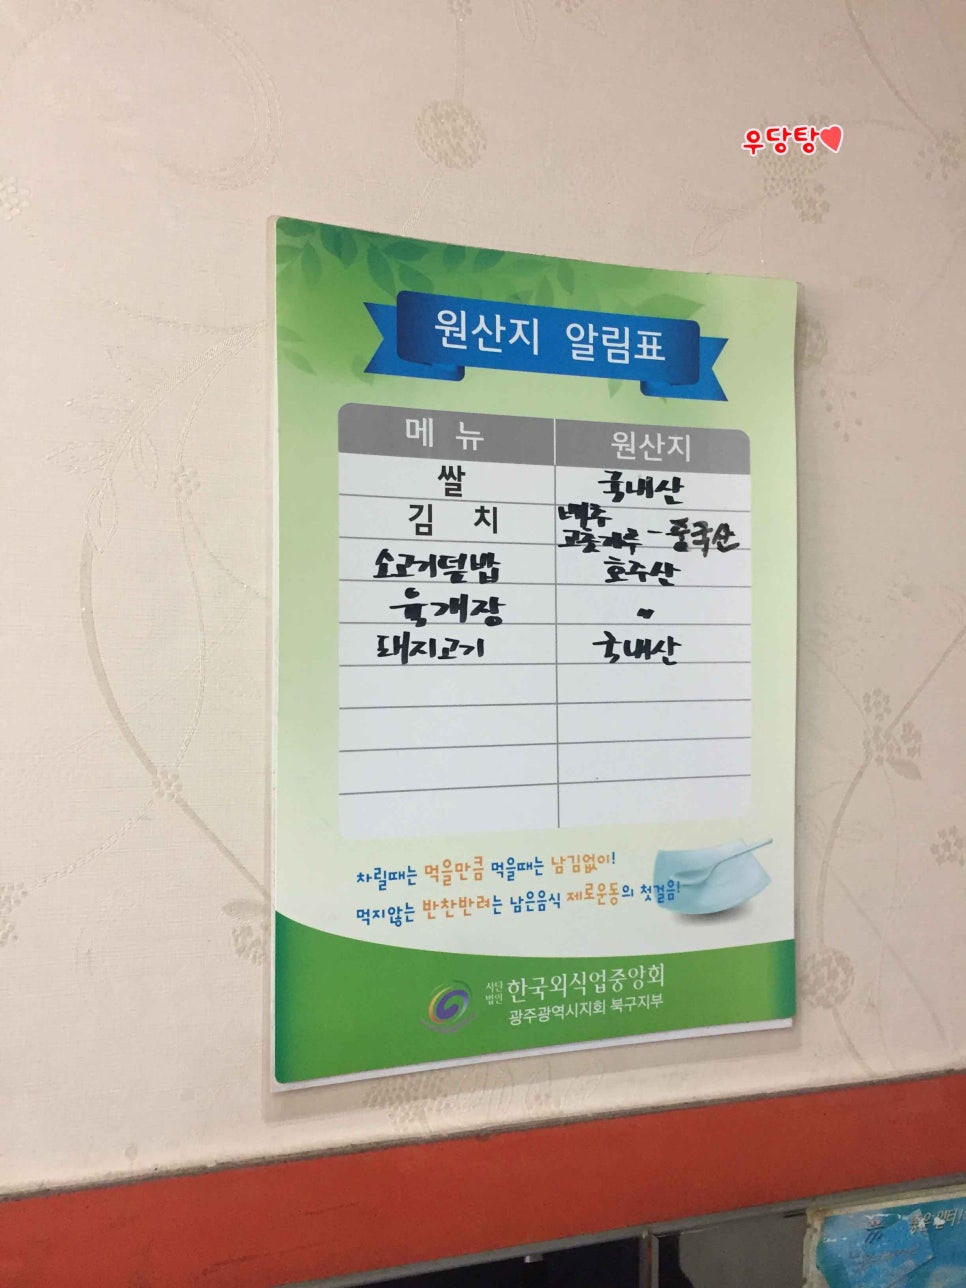 우당탕
원산지 알림표
메뉴 원산지
쌀 국내산
김치 배추 고춧가루 - 중국산
소고기덮밥 호주산
육개장 〃
돼지고기 국내산
차릴때는 먹을만큼 먹을때는 남김없이!
먹지않는 반찬반려는 남은음식 제로운동의 첫걸음!
사단법인 한국외식업중앙회
광주광역시지회 북구지부